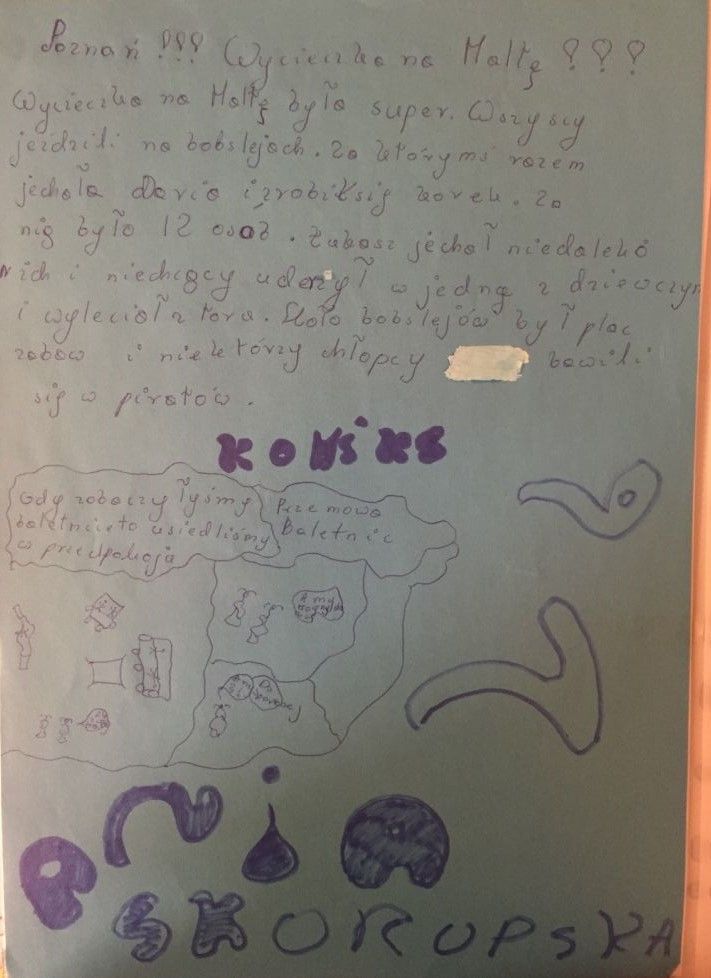 Poznań !!! Wycieczka na Maltę !!!
Wycieczka na Maltę była super. Wszyscy
jeździli na bobslejach. Za którymś razem
jechała Daria i zrobił się korek. Za
nią było 12 osób. Łukasz jechał niedaleko
nich i niechcący uderzył w jedną z dziewczyn
i wyleciał z toru. Koło bobslejów był plac
zabaw i niektórzy chłopcy bawili
się w piratów.
KOMiKS
Gdy zobaczyłyśmy
baletnice to usiedliśmy
w przedpokoju
Przemowa
Baletnic
A my
ania
SKORUPSKA